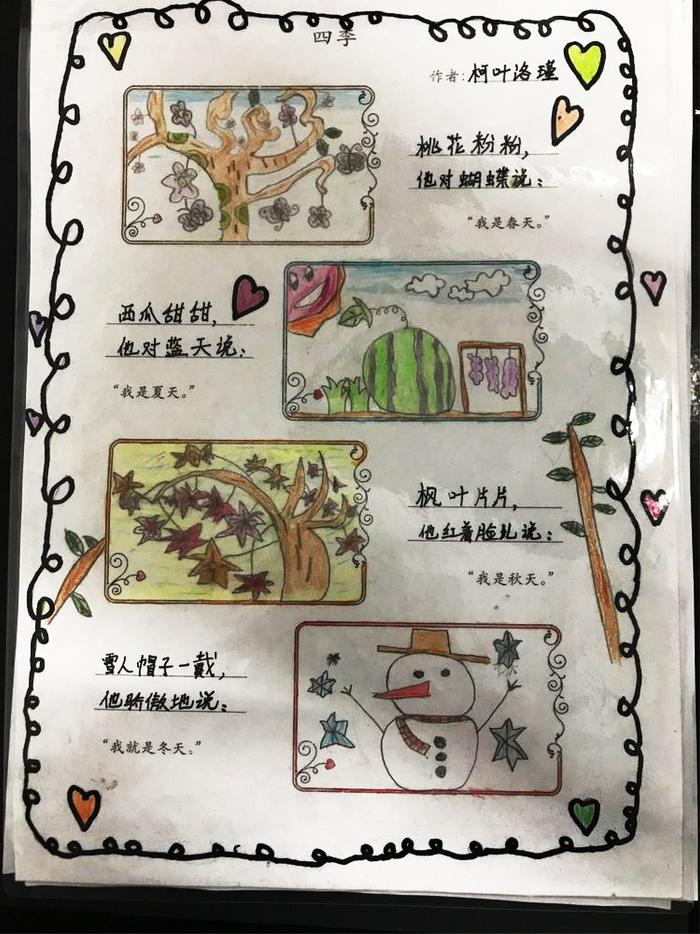 四季
作者:柯叶洛瑾
桃花粉粉,
他对蝴蝶说:
“我是春天。”
西瓜甜甜,
他对蓝天说:
“我是夏天。”
枫叶片片,
他红着脸儿说:
“我是秋天。”
雪人帽子一戴,
他骄傲地说:
“我就是冬天。”